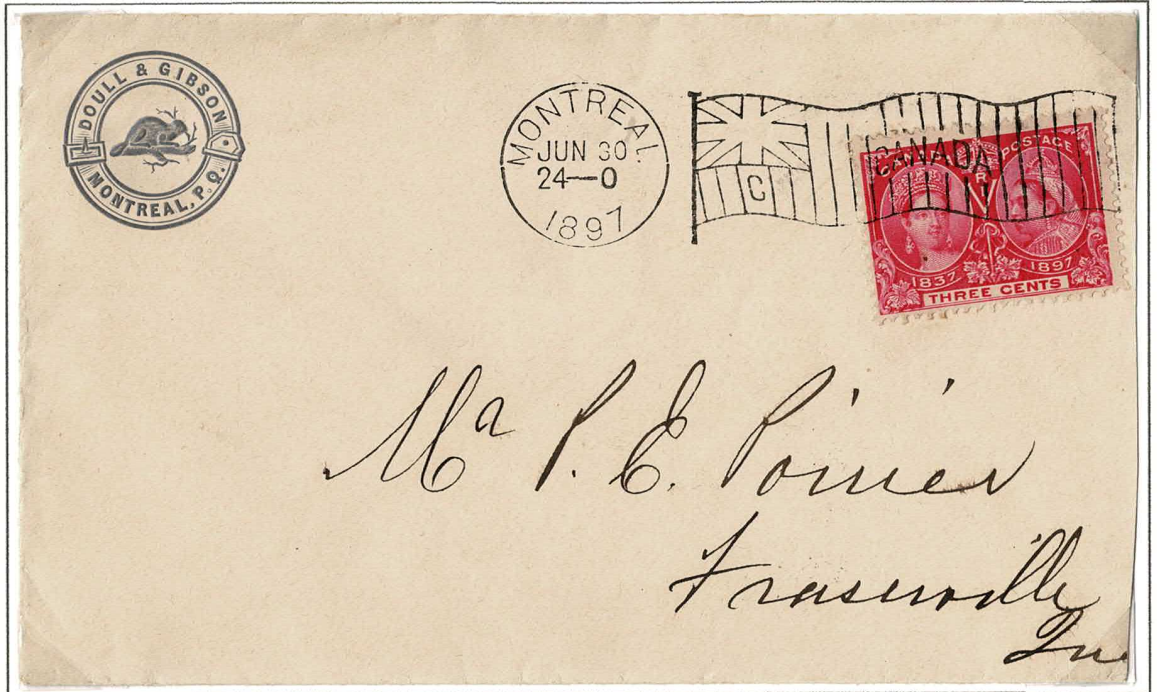 DOULL & GIBSON
MONTREAL, P.Q.
MONTREAL
JUN 30
24—0
1897
C
CANADA
CANADA POSTAGE
1837 1897
THREE CENTS
Mr P. E. Poirier
Fraserville
Que